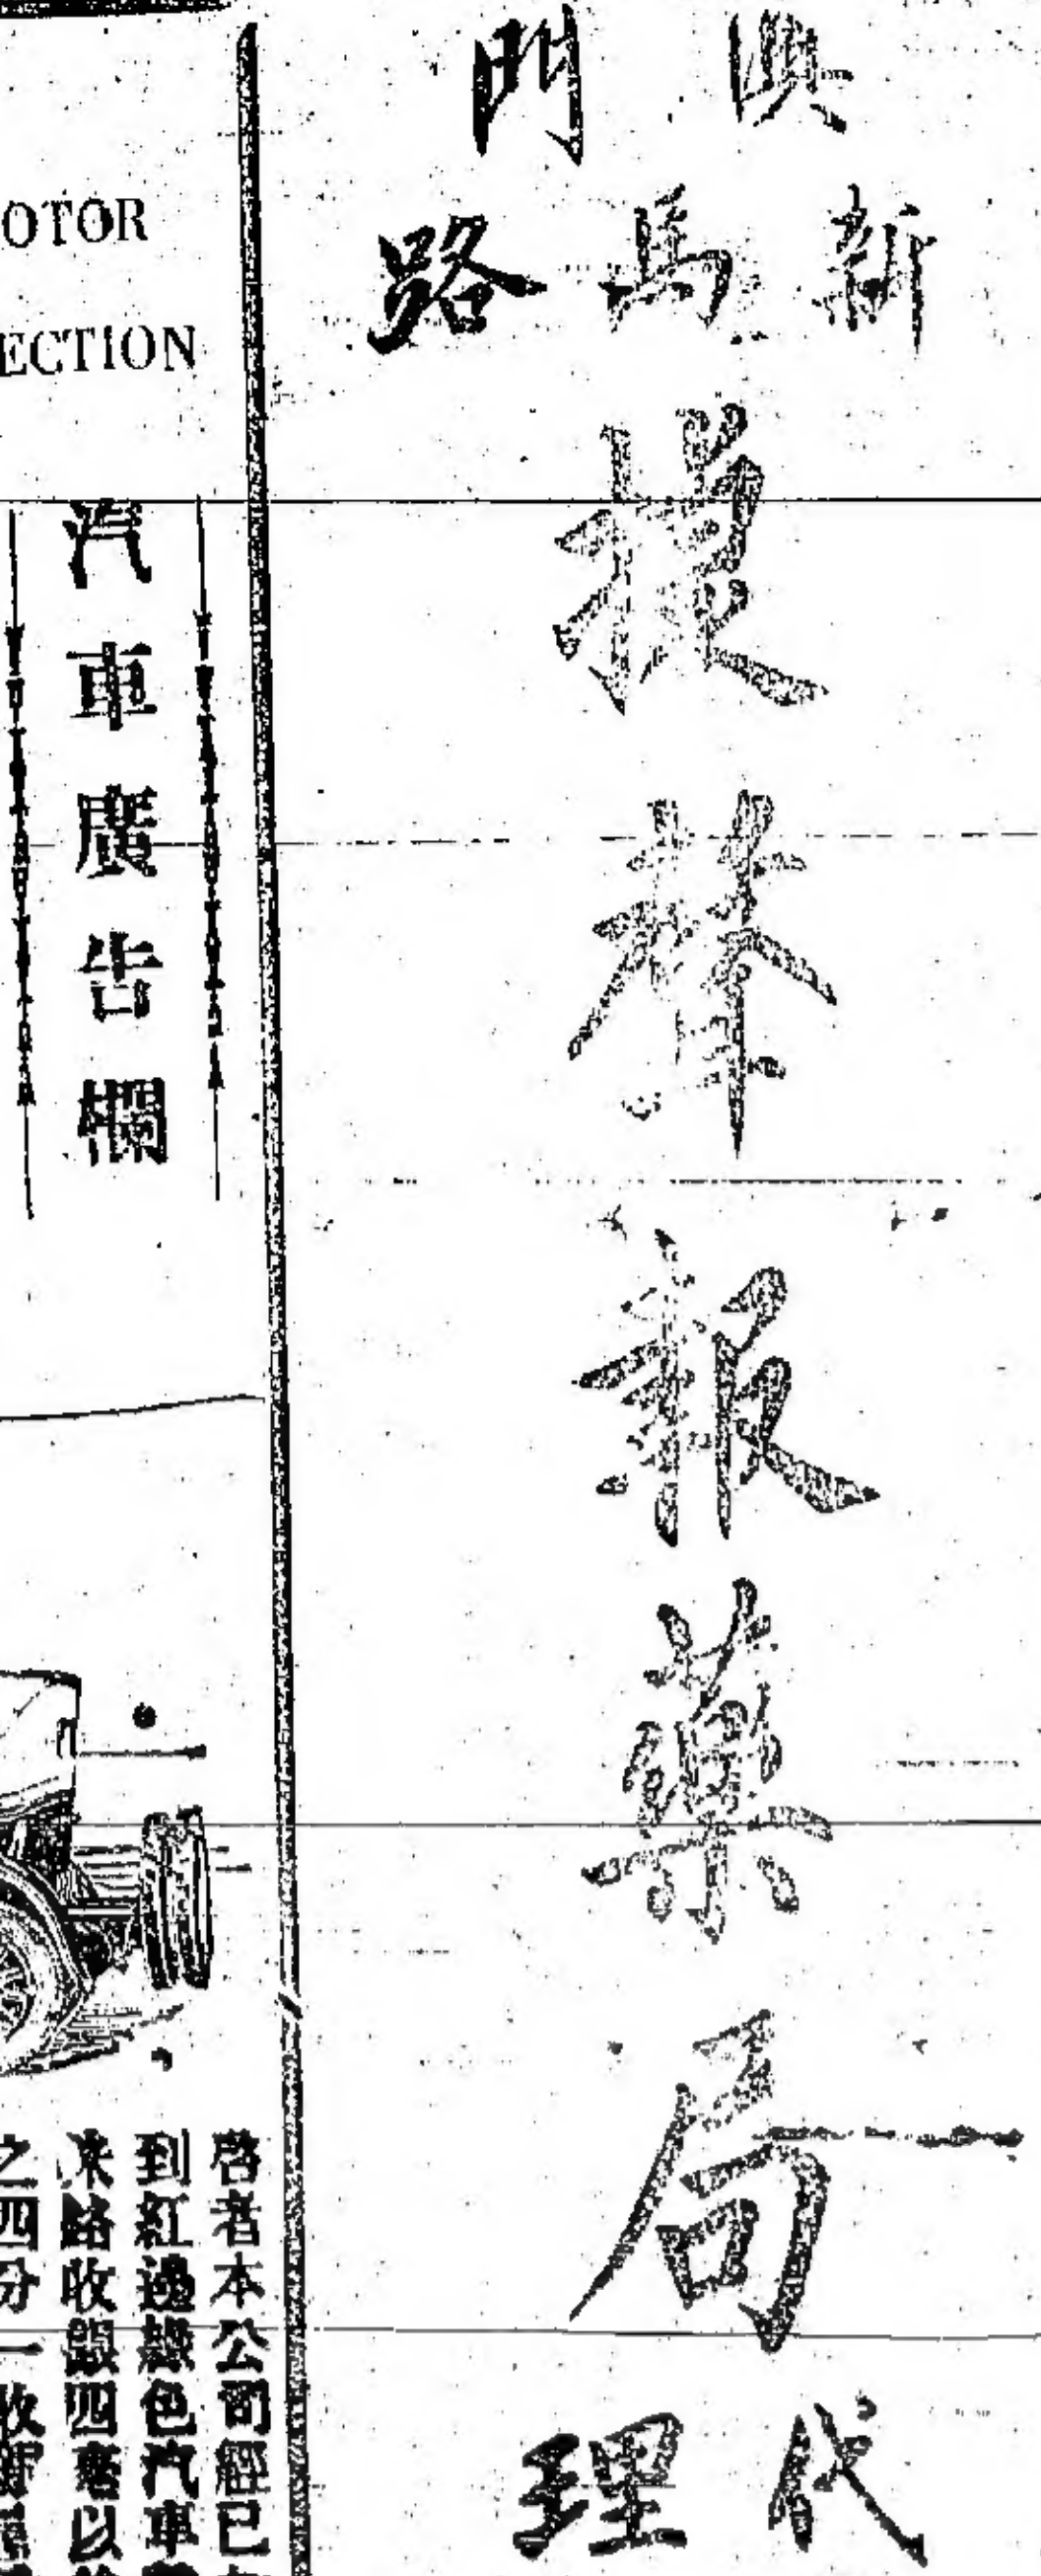 澳門
新馬路
報藥局
代理
OTOR
ECTION
汽車廣告欄
啓者本公司經已
到紅邊綠色汽車
來路收銀四毫以
之四分一收